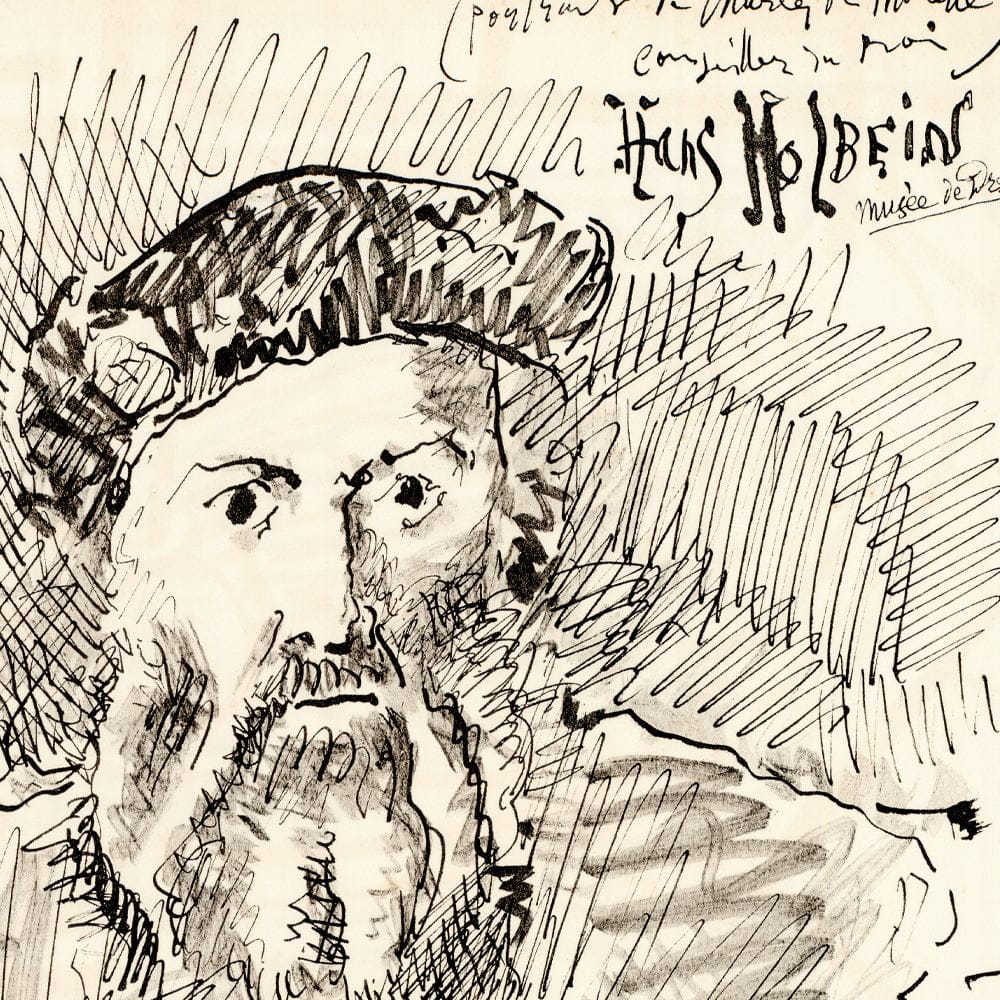 (portrait de Charles de
conseiller du roi)
Hans HolBEiN
musée de Dres